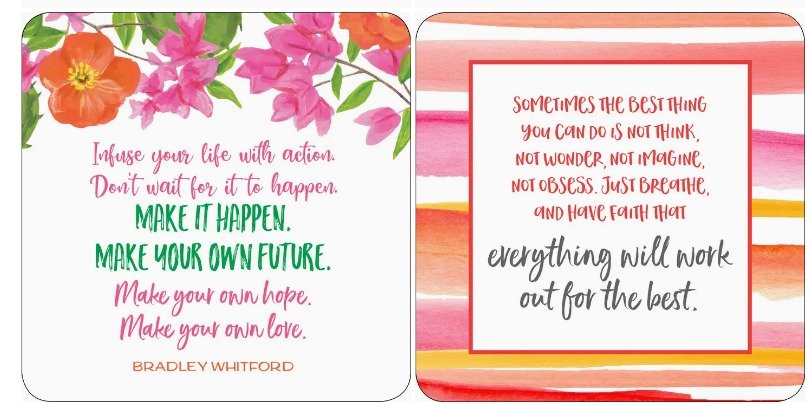 Infuse your life with action.
Don't wait for it to happen.
MAKE IT HAPPEN.
MAKE YOUR OWN FUTURE.
Make your own hope.
Make your own love.
BRADLEY WHITFORD
SOMETIMES THE BEST THING
YOU CAN DO IS NOT THINK,
NOT WONDER, NOT IMAGINE,
NOT OBSESS. JUST BREATHE,
AND HAVE FAITH THAT
everything will work
out for the best.